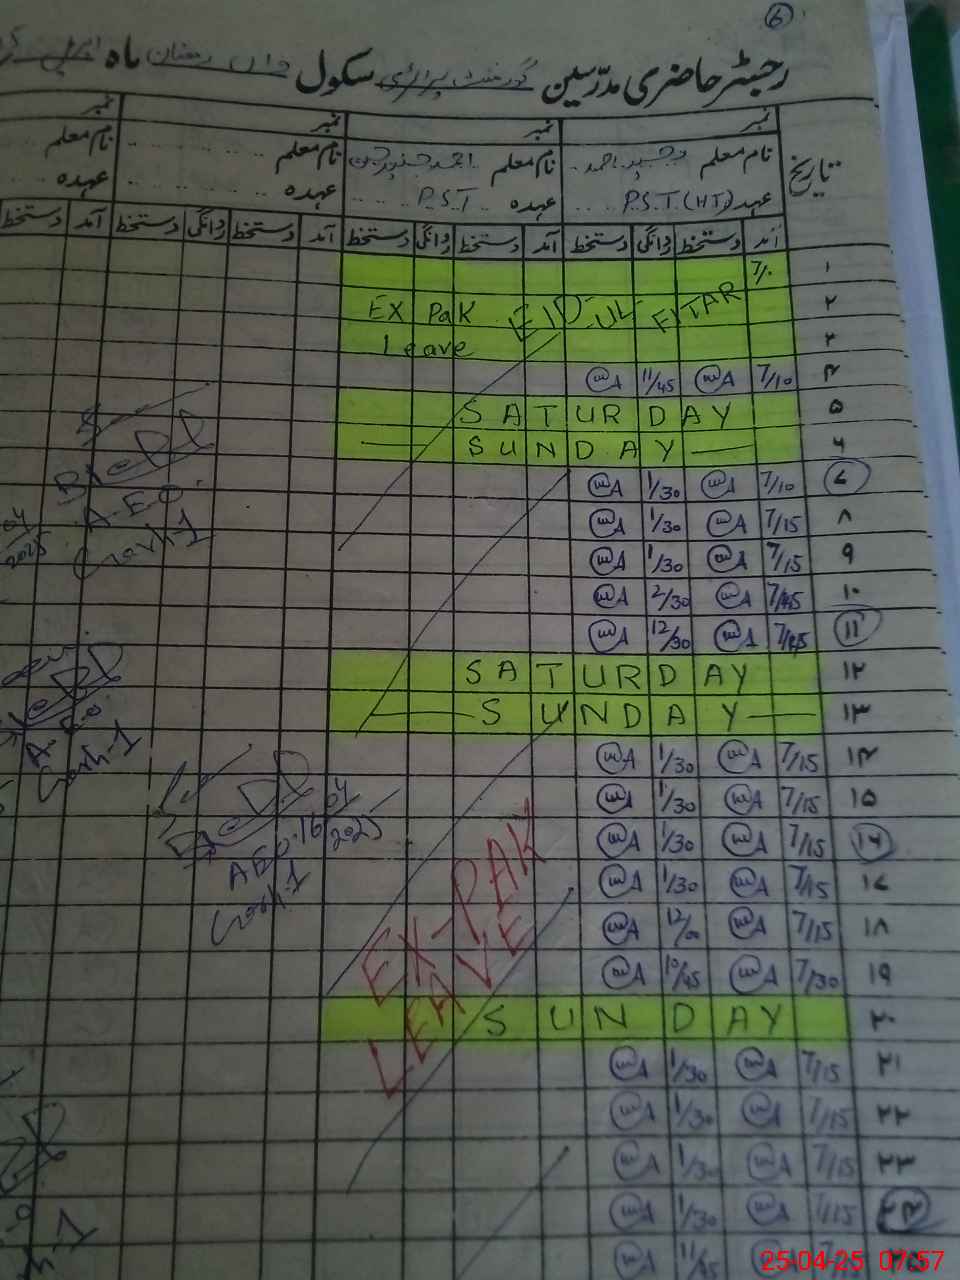 6
رجسٹر حاضری مدرسین گورنمنٹ پرائمری سکول واں رمضان ماہ اپریل
نمبر نمبر نمبر نمبر
تاریخ نام معلم وحید احمد نام معلم احمد جنید نام معلم نام معلم
عہدہ P.S.T (HT) عہدہ P.S.T عہدہ عہدہ
آمد دستخط روانگی دستخط آمد دستخط روانگی دستخط آمد دستخط روانگی دستخط آمد دستخط
۱ 7/0
۲ EX PaK EID-UL-FITAR
۳ Leave
۴ 7/10 A 11/45 A
۵ SATURDAY
۶ SUNDAY
۷ 7/10 A 1/30 A
۸ 7/15 A 1/30 A
۹ 7/15 A 1/30 A
۱۰ 7/45 A 2/30 A
۱۱ 7/45 A 12/30 A
۱۲ SATURDAY
۱۳ SUNDAY
۱۴ 7/15 A 1/30 A
۱۵ 7/15 A 1/30 A
۱۶ 7/15 A 1/30 A
۱۷ 7/15 A 1/30 A
۱۸ 7/15 A 12/00 A
۱۹ 7/30 A 10/45 A
۲۰ SUNDAY
۲۱ 7/15 A 1/30 A
۲۲ 7/15 A 1/30 A
۲۳ 7/15 A 1/30 A
۲۴ 7/15 A 1/30 A
11/45 A
EX-PAK
LEAVE
A.E.O
04
2025
A.E.O
AEO 16/04
2025
25-04-25 07:57